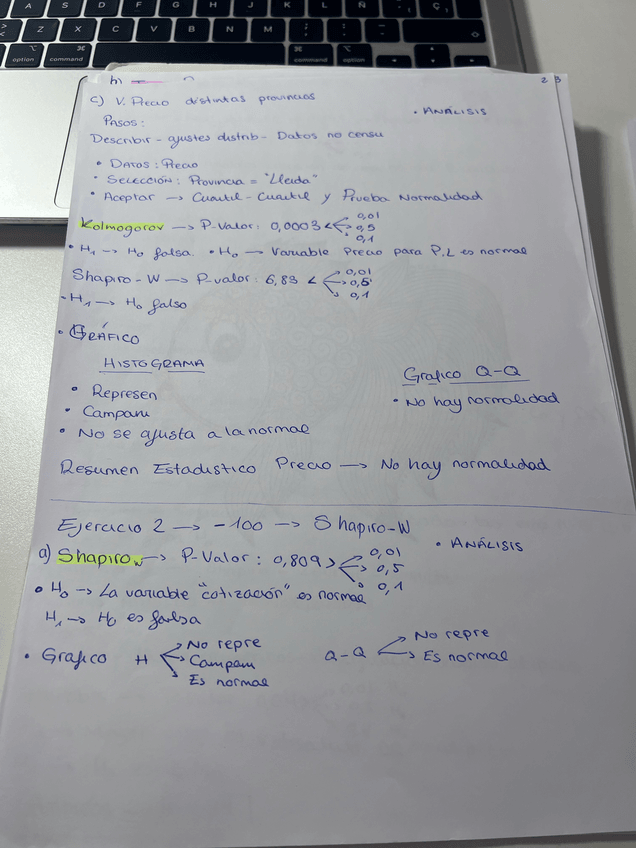 2 3
c) V. Precio distintas provincias
• ANÁLISIS
PASOS:
Describir - ajustes distrib - Datos no censu
• DATOS: Precio
• SELECCIÓN: Provincia = "Lleida"
• Aceptar → Cuartil-Cuartil y Prueba Normalidad
Kolmogorov → P-Valor: 0,0003 < 0,01
0,5
0,1
• H₁ → H₀ falsa. • H₀ → Variable Precio para P.L es normal
Shapiro-W → P-valor: 6,83 < 0,01
0,5
0,1
• H₁ → H₀ falso
• GRÁFICO
HISTOGRAMA
• Represen
• Campani
• No se ajusta a la normal
Grafico Q-Q
• No hay normalidad
Resumen Estadistico Precio → No hay normalidad
Ejercicio 2 → -100 → Shapiro-W
a) Shapiro w → P-Valor: 0,809 > 0,01
0,5
0,1
• ANÁLISIS
• H₀ → La variable "cotización" es normal
H₁ → H₀ es falsa
• Grafico H → No repre
→ Campani
→ Es normal
Q-Q → No repre
→ Es normal
Z X C V B N M
option command command option